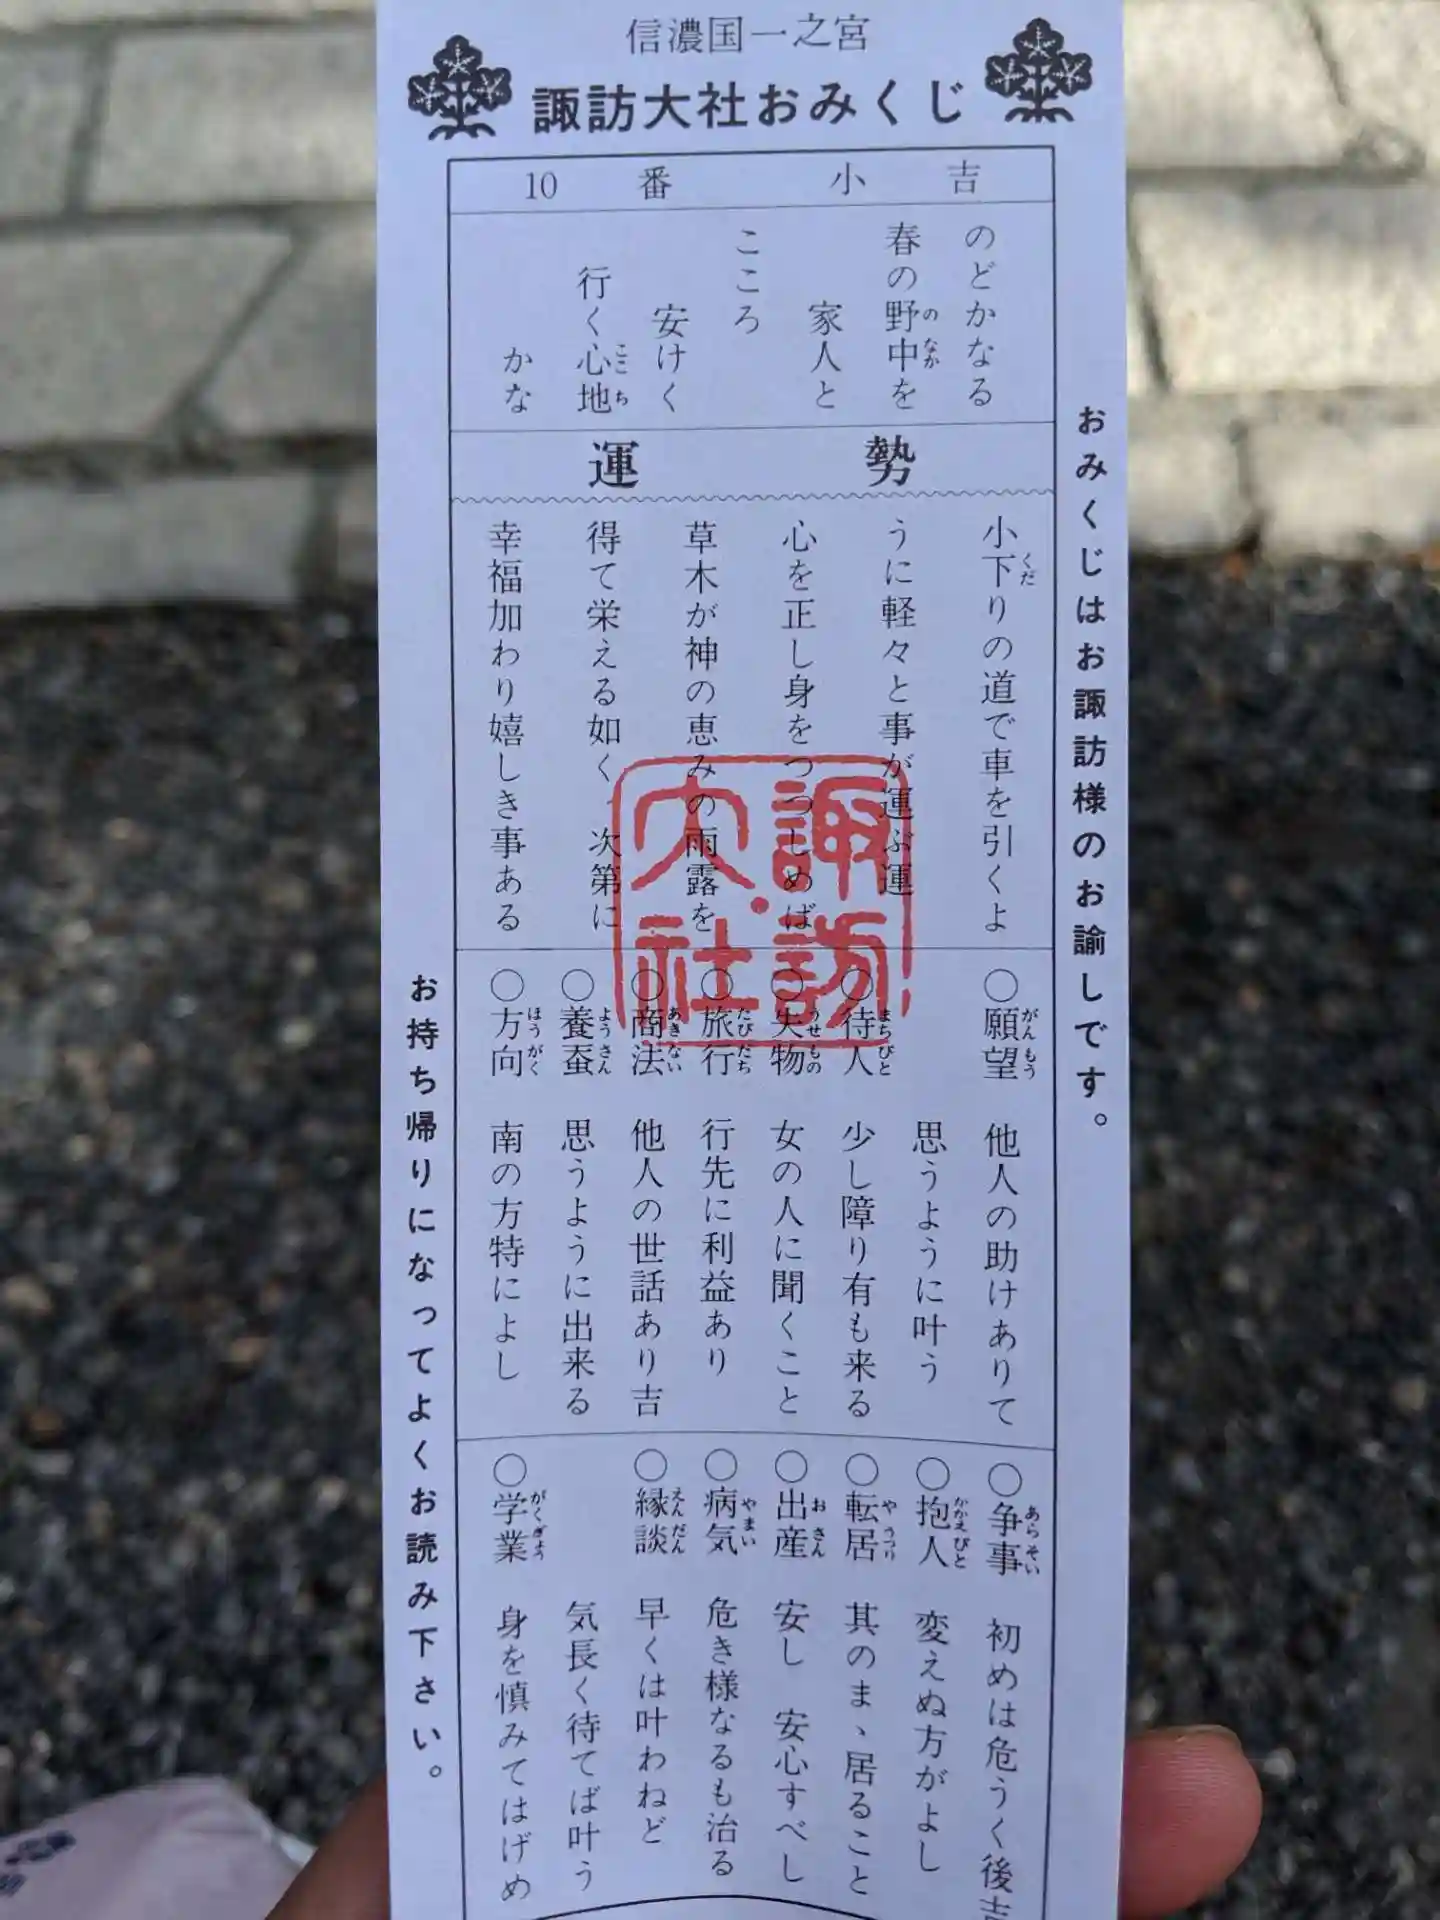 信濃国一之宮
諏訪大社おみくじ
10番 小吉
のどかなる
春の野中を
家人と
こころ
安けく
行く心地
かな
運勢
小下りの道で車を引くよ
うに軽々と事が運ぶ運
心を正し身をつつしめば
草木が神の恵みの雨露を
得て栄える如く 次第に
幸福加わり嬉しき事ある
○願望 他人の助けありて
思うように叶う
○待人 少し障り有も来る
○失物 女の人に聞くこと
○旅行 行先に利益あり
○商法 他人の世話あり吉
○養蚕 思うように出来る
○方向 南の方特によし
○争事 初めは危うく後吉
○抱人 変えぬ方がよし
○転居 其のまゝ居ること
○出産 安し 安心すべし
○病気 危き様なるも治る
○縁談 早くは叶わねど
気長く待てば叶う
○学業 身を慎みてはげめ
おみくじはお諏訪様のお諭しです。
お持ち帰りになってよくお読み下さい。
諏訪
大社